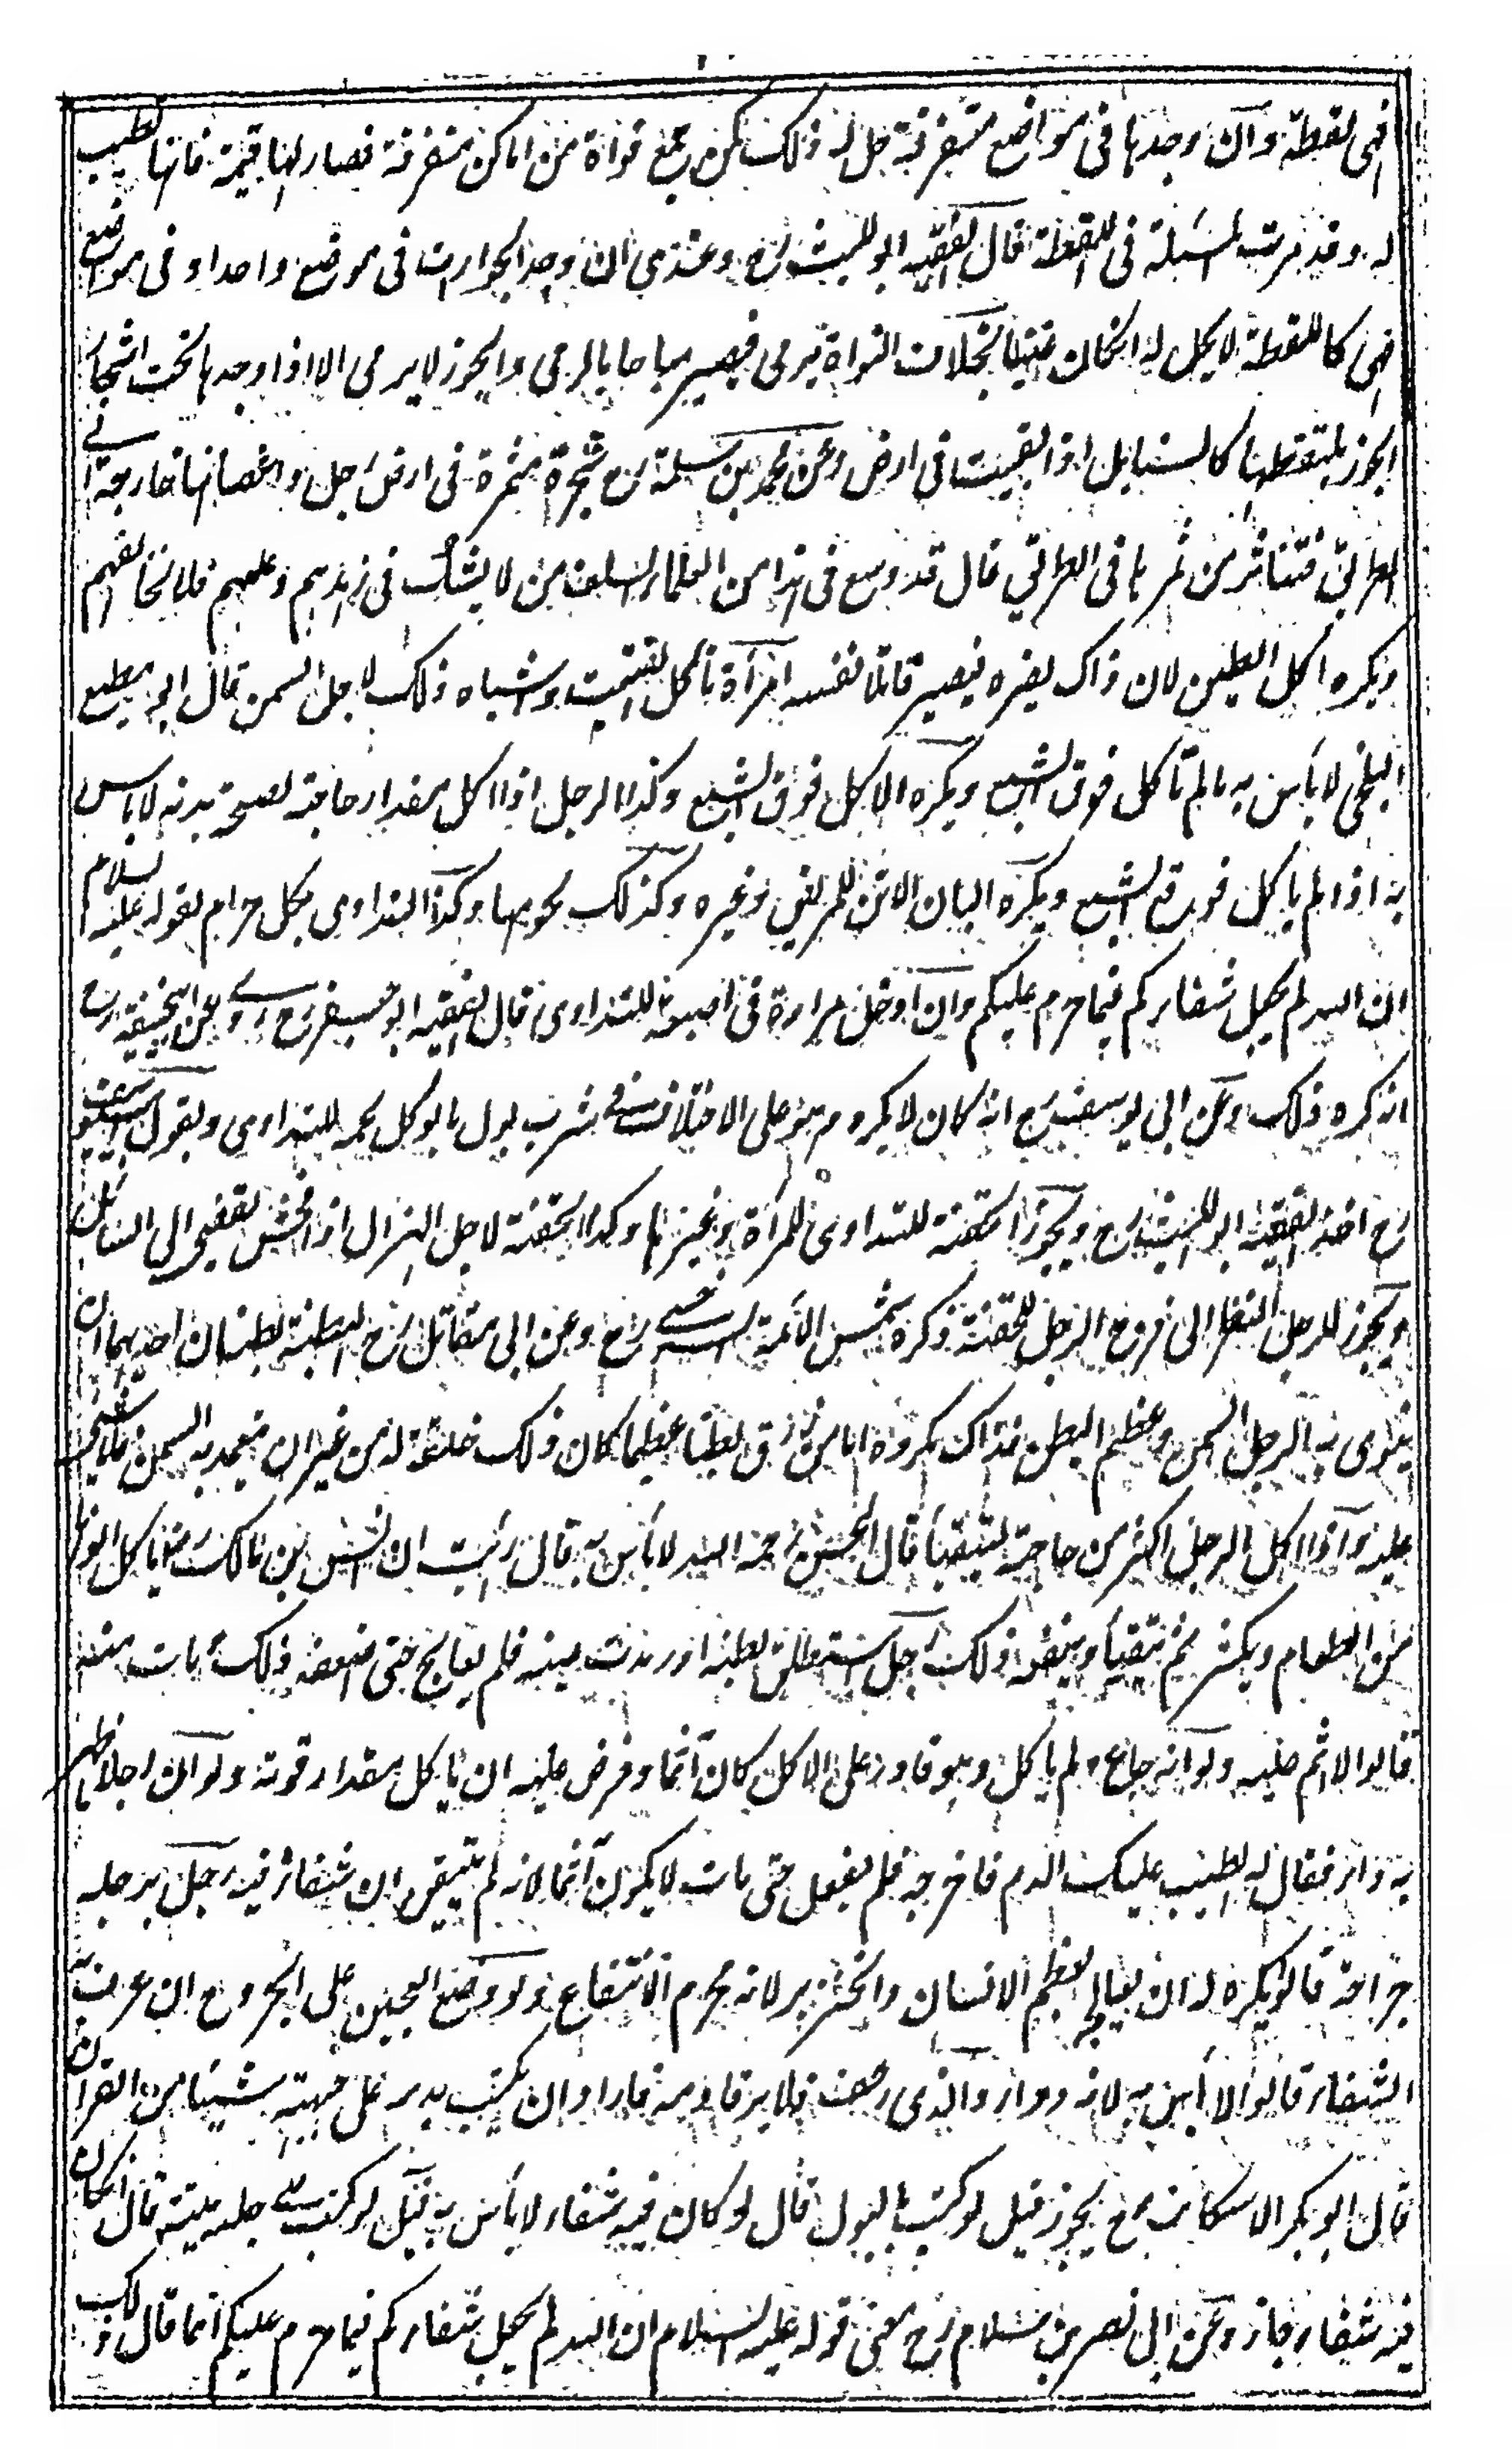 فهى لقطة وان وجدها فى مواضع متفرقة حل له ذلك كمن جمع نواة من اماكن متفرقة فصار لها قيمة فانها تطيب
له وقد مرت المسئلة فى اللقطة قال الفقيه ابو الليث رح وعندى ان وجد الجوارت فى موضع واحد او فى مواضع
فهى كاللقطة لا يحل له انكان غنيا بخلاف النواة ترمى فيصير مباحا بالرمى والجوز لا يرمى الا اذا وجدها تحت اشجار
الجوز يلتقطها كالسنابل اذا بقيت فى ارض وعن محمد بن سلمة رح شجرة مثمرة فى ارض رجل واغصانها خارجة الى
الطريق فتناثر من ثمرها فى الطريق قال قد وسع فى هذا من العلماء السلف من لا يشك فى زهدهم وعلمهم فلا نخالفهم
ويكره اكل الطين لان ذاك يضره فيصير قاتلا نفسه امرأة تأكل الفتيت واشباه ذلك لاجل السمن قال ابو مطيع
البلخى لا بأس به مالم تأكل فوق الشبع ويكره الاكل فوق الشبع وكذا الرجل اذا اكل مقدار حاجته لصحة بدنه لا باس
به اذا لم يأكل فوق الشبع ويكره البان الاتن للمريض وغيره وكذلك لحومها وكذا التداوى بكل حرام لقوله عليه السلام
ان الله لم يجعل شفاءكم فيما حرم عليكم وان ادخل مرارة فى اصبعه للتداوى قال الفقيه ابو جعفر رح روى عن ابيحنيفة رح
انه كره ذلك وعن ابى يوسف رح انه كان لا يكره وهو على الاختلاف فى شرب بول ما يوكل لحمه للتداوى وبقول ابى يوسف
رح اخذ الفقيه ابو الليث رح ويجوز الحقنة للتداوى للمرأة وغيرها وكذا الحقنة لاجل الهزال اذا فحش يفضى الى السل
ويجوز للرجل النظر الى فرج الرجل للحقنة ذكره شمس الائمة السرخسى رح وعن ابى مقاتل رح البطنة بطنتان احديهما ان
ينوى به الرجل السمن وعظم البطن فذاك مكروه اما من رزق بطنا عظيما كان ذلك خلقة له من غير ان يتعمد به السمن فلا شىء
عليه واذا اكل الرجل اكثر من حاجته ليتقيأ قال الحسن رحمه الله لا بأس به قال رئيت انس بن مالك رض يأكل الوانا
من الطعام ويكثر ثم يتقيأ وينفعه ذلك رجل استطلق بطنه او رمدت عينه فلم يعالج حتى اضعفه ذلك ومات منه
قالوا لا اثم عليه ولو انه جاع ولم يأكل وهو قادر على الاكل كان آثما وفرض عليه ان يأكل مقدار قوته ولو ان رجلا ظهر
به داء فقال له الطبيب عليك الدم فاخرجه فلم يفعل حتى مات لا يكون آثما لانه لم يتيقن ان شفاءه فيه رجل برجله
جراحة قالوا يكره له ان يعالجه بعظم الانسان والخنزير لانه محرم الانتفاع ولو وضع العجين على الجروح ان عرف به
الشفاء قالوا لا بأس به لانه دواء والذى رعف فلا يرقا دمه فاراد ان يكتب بدمه على جبهته شيئا من القرآن
قال ابو بكر الاسكاف رح يجوز قيل لو كتب بالبول قال لو كان فيه شفاء لا بأس به قيل لو كتب على جلد ميتة قال انكان
فيه شفاء جاز وعن ابى نصر بن سلام رح معنى قوله عليه السلام ان الله لم يجعل شفاءكم فيما حرم عليكم انما قال ذلك